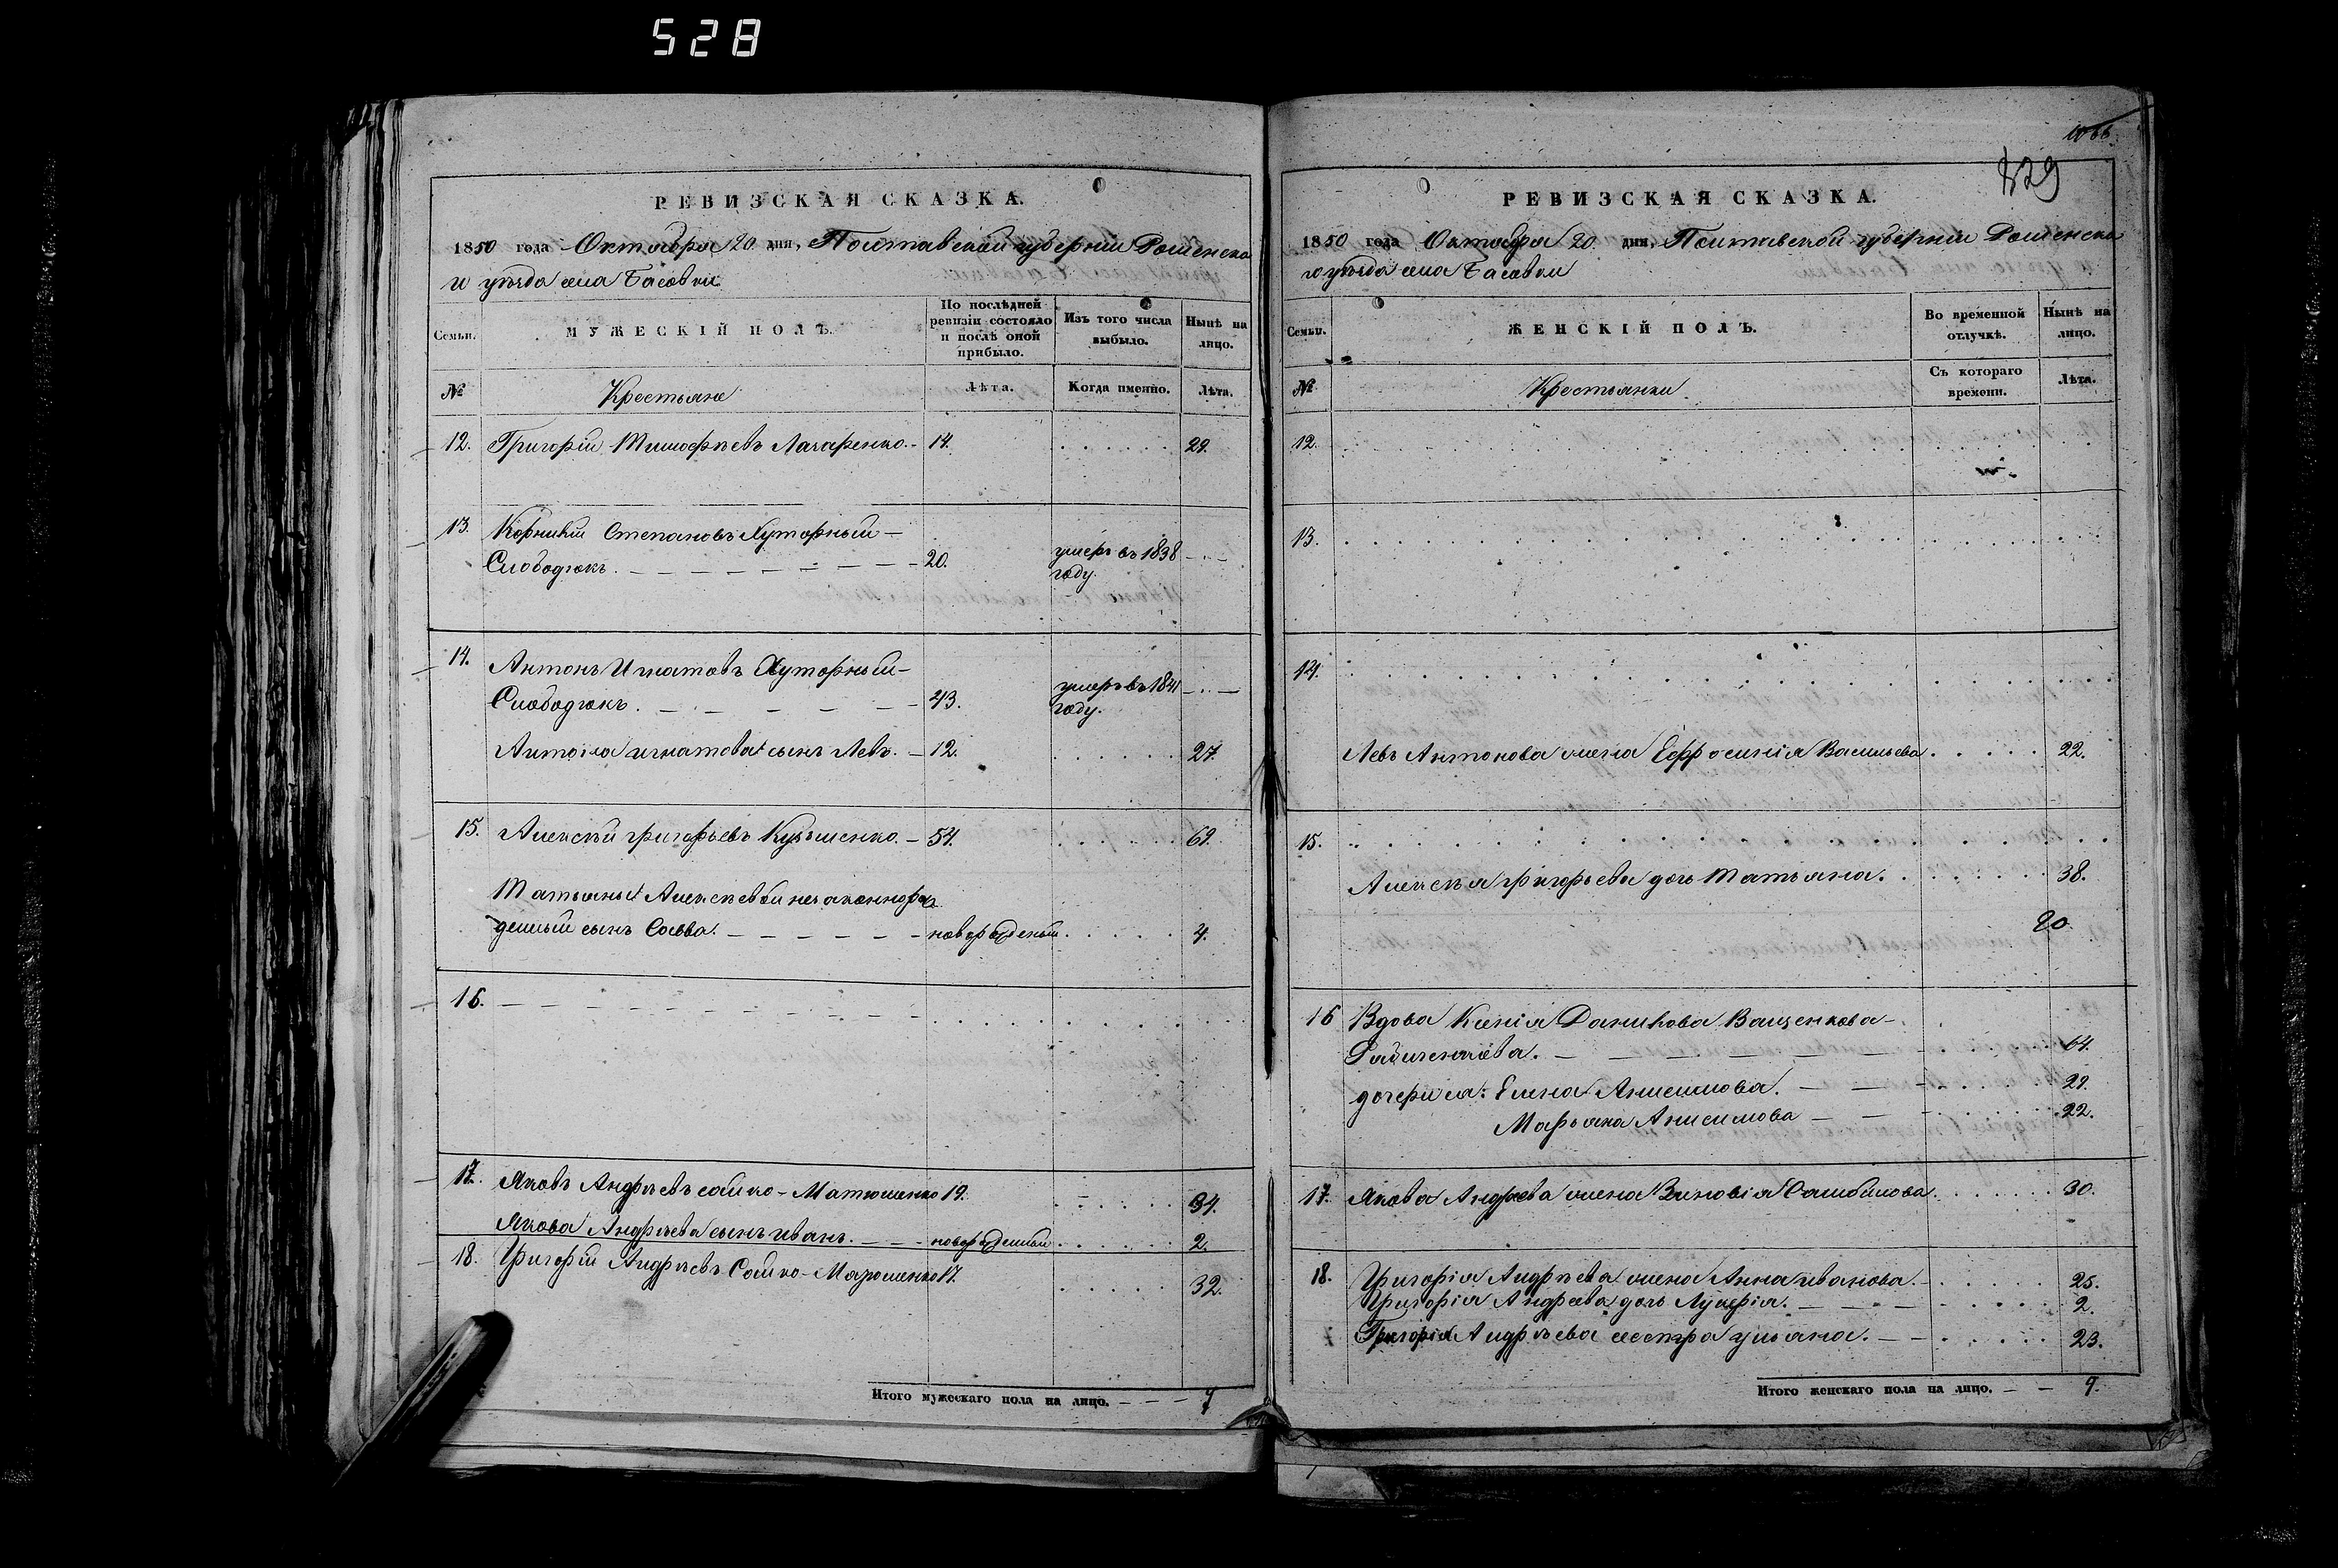 528
РЕВИЗСКАЯ СКАЗКА.
1850 года Октабря 20 дня, Полтавской губерніи Роменска
го уѣзда села Басовки
Семьи.
МУЖЕСКІЙ ПОЛЪ.
По послѣдней ревизіи состояло и послѣ оной прибыло.
Изъ того числа выбыло.
Нынѣ на лицо.
№
Крестьяне
Лѣта.
Когда именно.
Лѣта.
12. Григорій Тимофѣевъ Лазаренко. 14. 29.
13. Корнилій Степановъ Хуторный
Слободюкъ. 20. умеръ въ 1838
году.
14. Антонъ Игнатовъ Хуторный
Слободюкъ. 43. умеръ въ 1841
году.
Антона игнатова сынъ Левъ. 12. 27.
15. Алексѣй григорьевъ 54. 69.
Татьяны Алексѣевой незаконноро
денный сынъ Савва. новорожденый 4.
16.
17. Яковъ Андрѣевъ сайко-Матюшенко 19. 34.
Якова Андрѣева сынъ иванъ. новорожденный 2.
18. Григорій Андрѣевъ Сайко-Матюшенко 17. 32.
Итого мужескаго пола на лицо. 7
1066
829
РЕВИЗСКАЯ СКАЗКА.
1850 года Октабря 20 дня Полтавской губерніи Роменска
го уѣзда села Басовки
Семьи.
ЖЕНСКІЙ ПОЛЪ.
Во временной отлучкѣ.
Нынѣ на лицо.
№
Крестьянки
Съ котораго времени.
Лѣта.
12.
13.
14.
Левъ Антонова жена Ефросинія Васильева 22.
15.
Алексѣя григорьева дочь Татьяна. 38.
20
16 Вдова Ксенія Данилова Ващенкова-
64.
дочери ея: Елена Анисимова. 29.
Марьяна Анисимова 22.
17. Якова Андрѣева жена Зиновія Самойлова. 30.
18. Григорія Андрѣева жена Анна иванова. 25.
Григорія Андрѣева дочь Лукерія. 2.
Григорія Андрѣева сестра ульяна. 23.
Итого женскаго пола на лицо. 9.